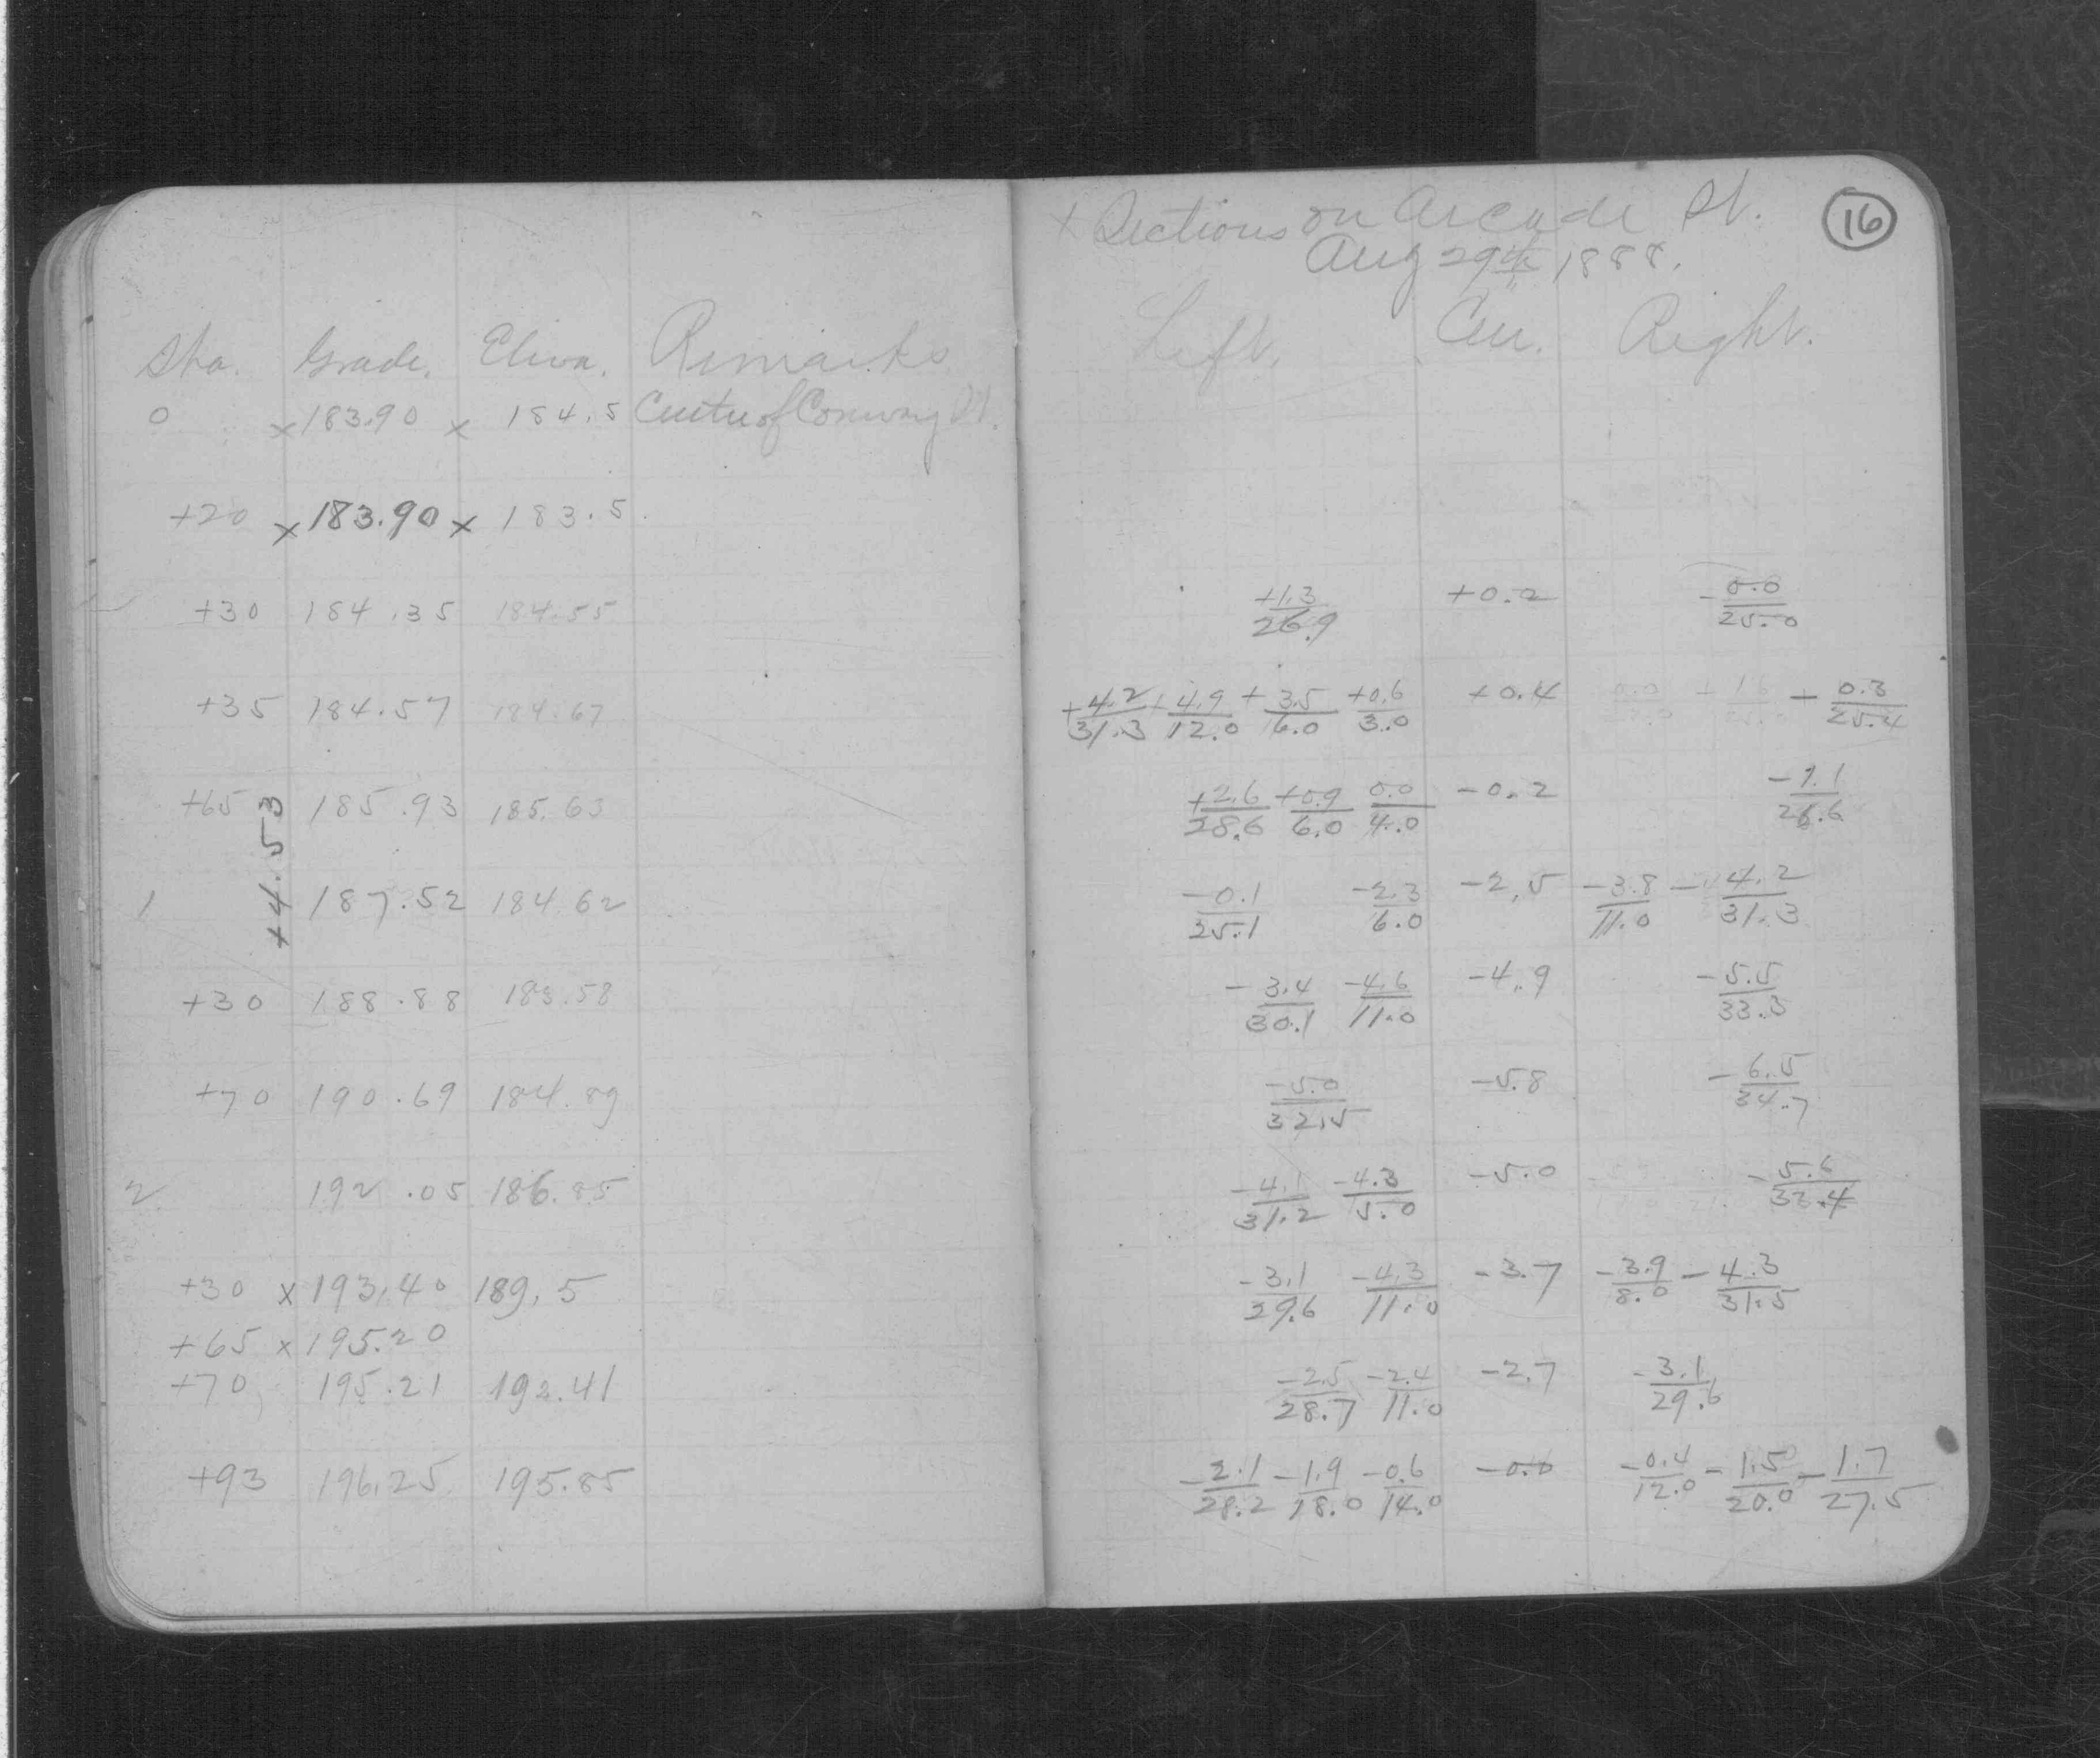 x Sections on Arcade St. 16
Aug 29th 1888.
Sta. Grade. Eleva. Remarks Left. Cen. Right.
0 x 183.90 x 184.5 Centre of Conway St.
+20 x 183.90 x 183.5
+30 184.35 184.55 +1.3/26.9 +0.2 -0.0/25.0
+35 184.57 184.67 +4.2/31.3 +4.9/12.0 +3.5/6.0 +0.6/3.0 +0.4 -0.3/25.4
+65 185.93 185.63 +2.6/28.6 +0.9/6.0 0.0/4.0 -0.2 -1.1/26.6
+4.53
1 187.52 184.62 -0.1/25.1 -2.3/6.0 -2.5 -3.8/11.0 -4.2/31.3
+30 188.88 183.58 -3.4/30.1 -4.6/11.0 -4.9 -5.5/33.3
+70 190.69 184.89 -5.0/32.5 -5.8 -6.5/34.7
2 192.05 186.85 -4.1/31.2 -4.3/5.0 -5.0 -5.6/33.4
+30 x 193.40 189.5 -3.1/29.6 -4.3/11.0 -3.7 -3.9/8.0 -4.3/31.5
+65 x 195.20
+70 195.21 192.41 -2.5/28.7 -2.4/11.0 -2.7 -3.1/29.6
+93 196.25 195.85 -2.1/28.2 -1.9/18.0 -0.6/14.0 -0.6 -0.4/12.0 -1.5/20.0 -1.7/27.5